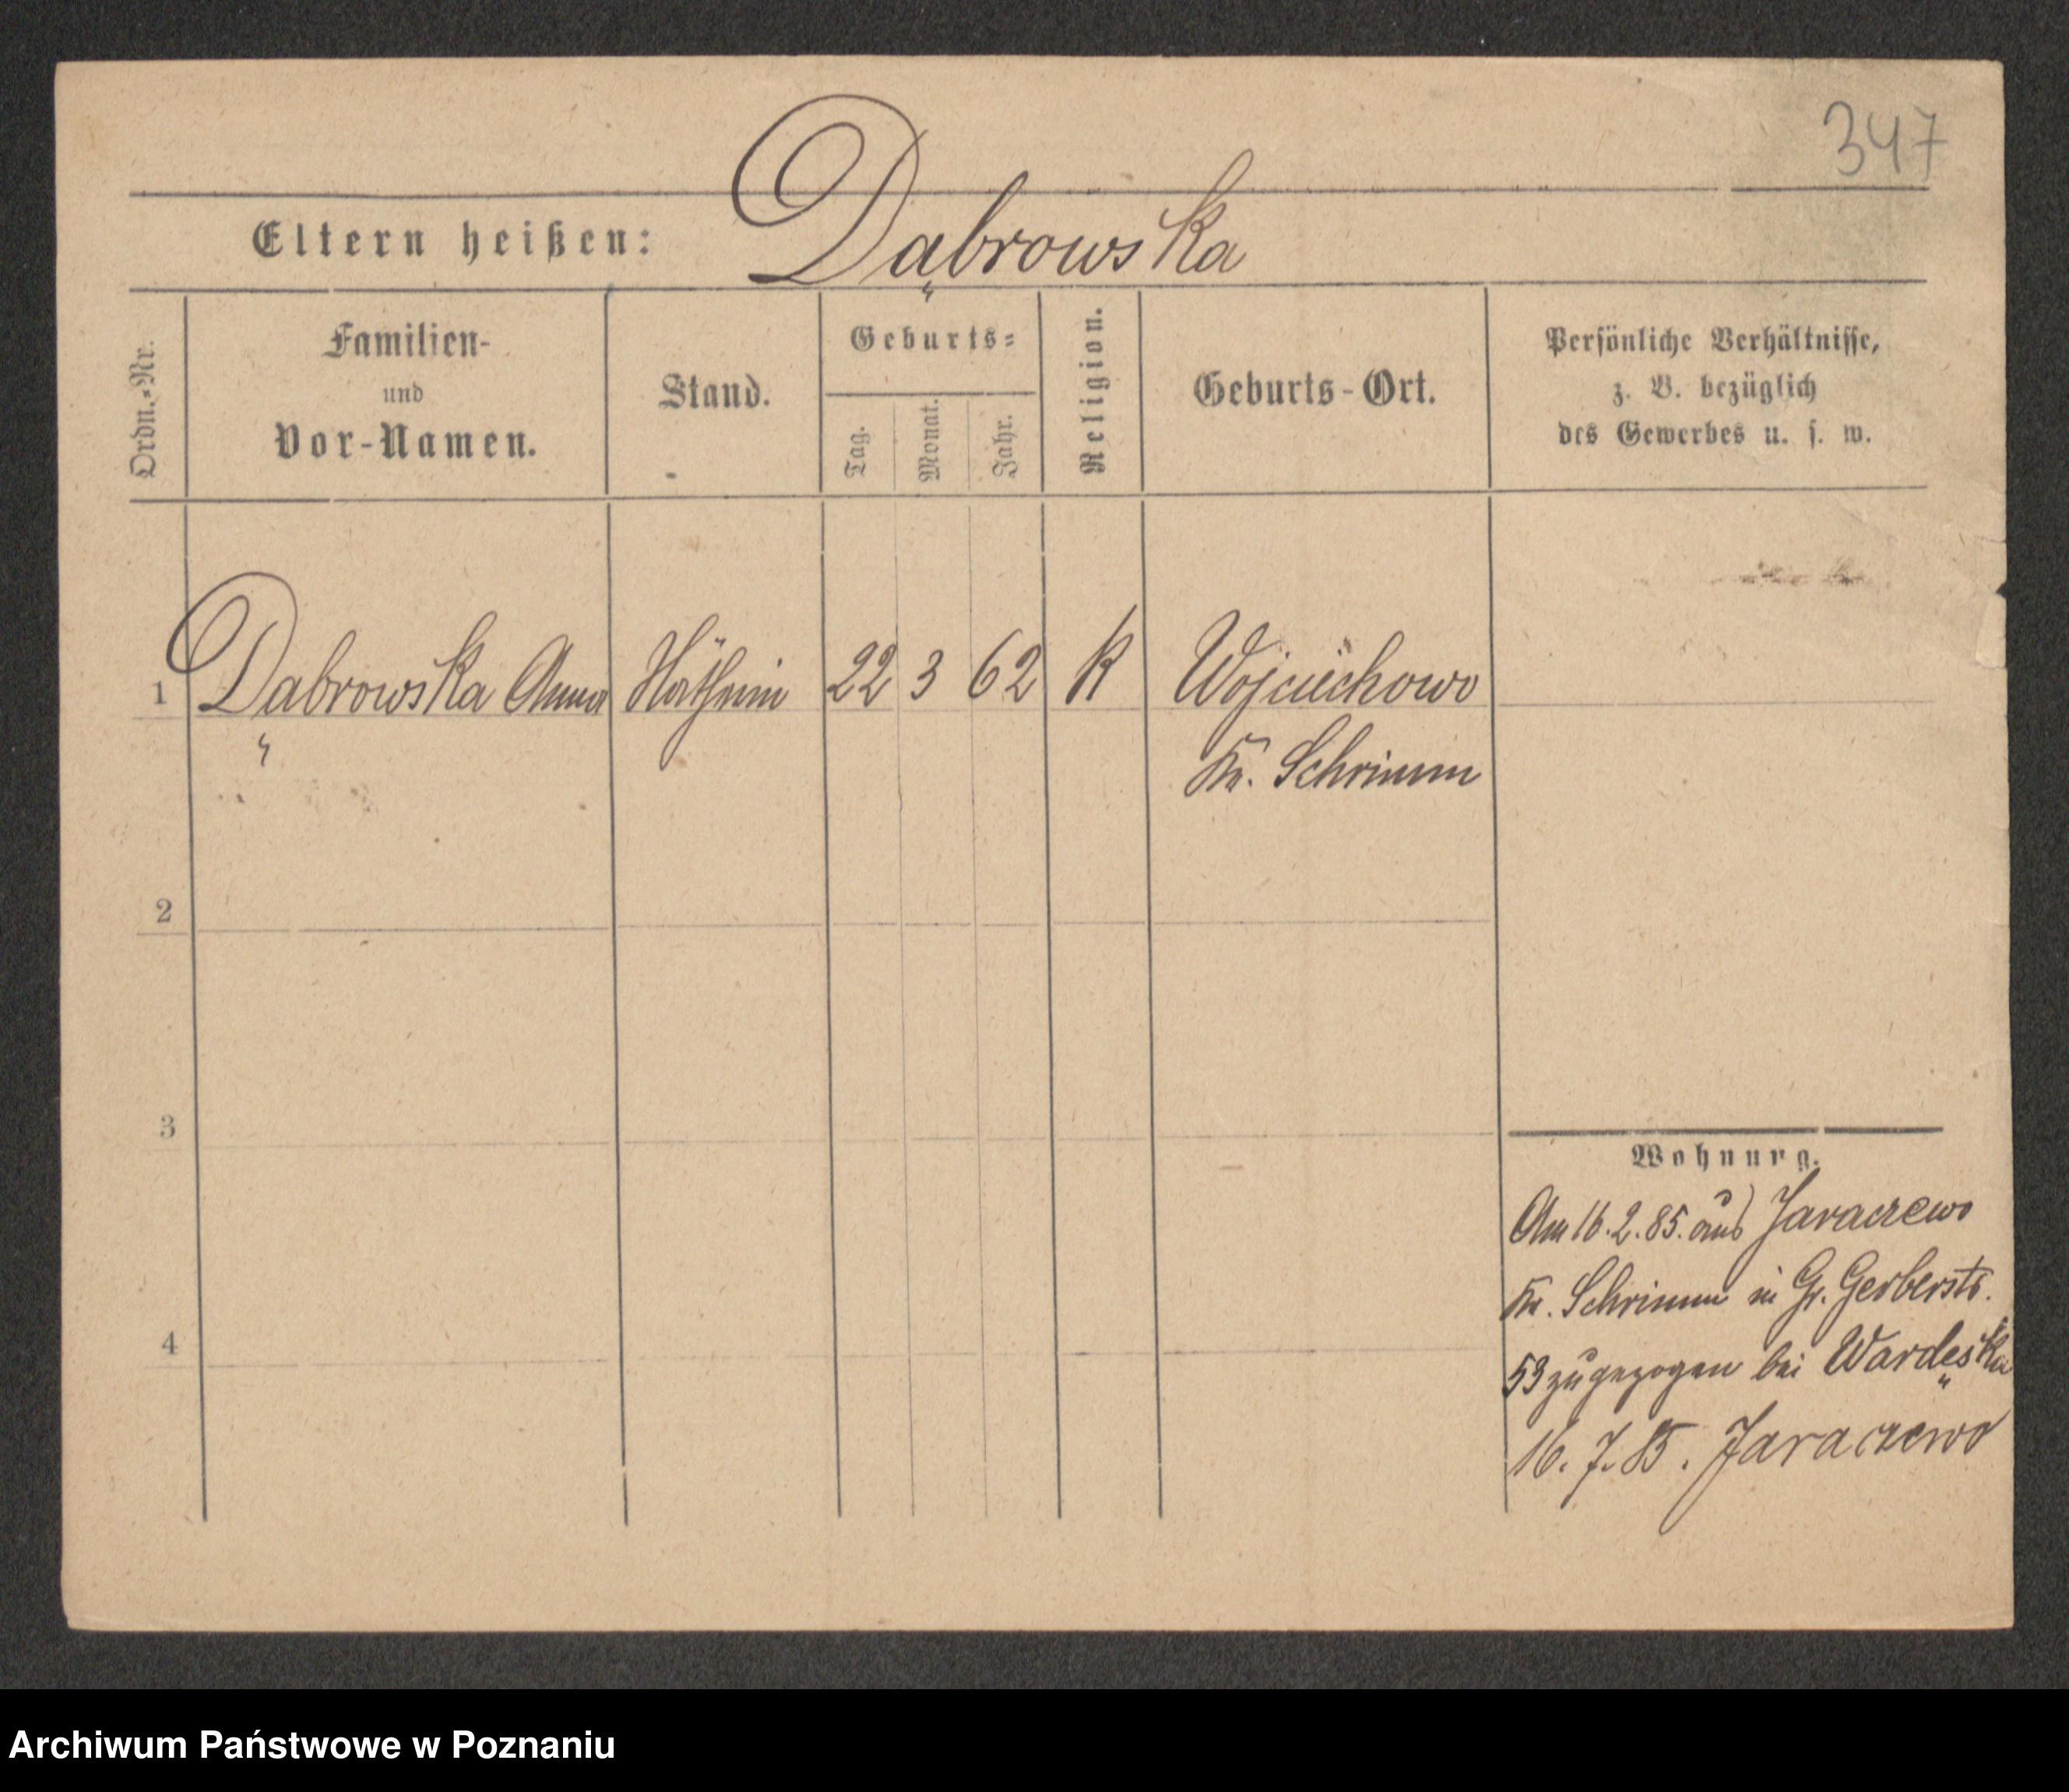 347
Eltern heißen: Dąbrowska
Ordn.-Nr.
Familien-
und
Vor-Namen.
Stand.
Geburts-
Tag.
Monat.
Jahr.
Religion.
Geburts-Ort.
Persönliche Verhältnisse,
z. B. bezüglich
des Gewerbes u. s. w.
1 Dąbrowska Anna Näthrin 22 3 62 K Wojciechowo
Kr. Schrimm
2
3
4
Wohnung.
Am 16.2.85. aus Jaraczewo
Kr. Schrimm in Gr. Gerberstr.
53 zugezogen bei Wardęska
16.7.85. Jaraczewo
Archiwum Państwowe w Poznaniu